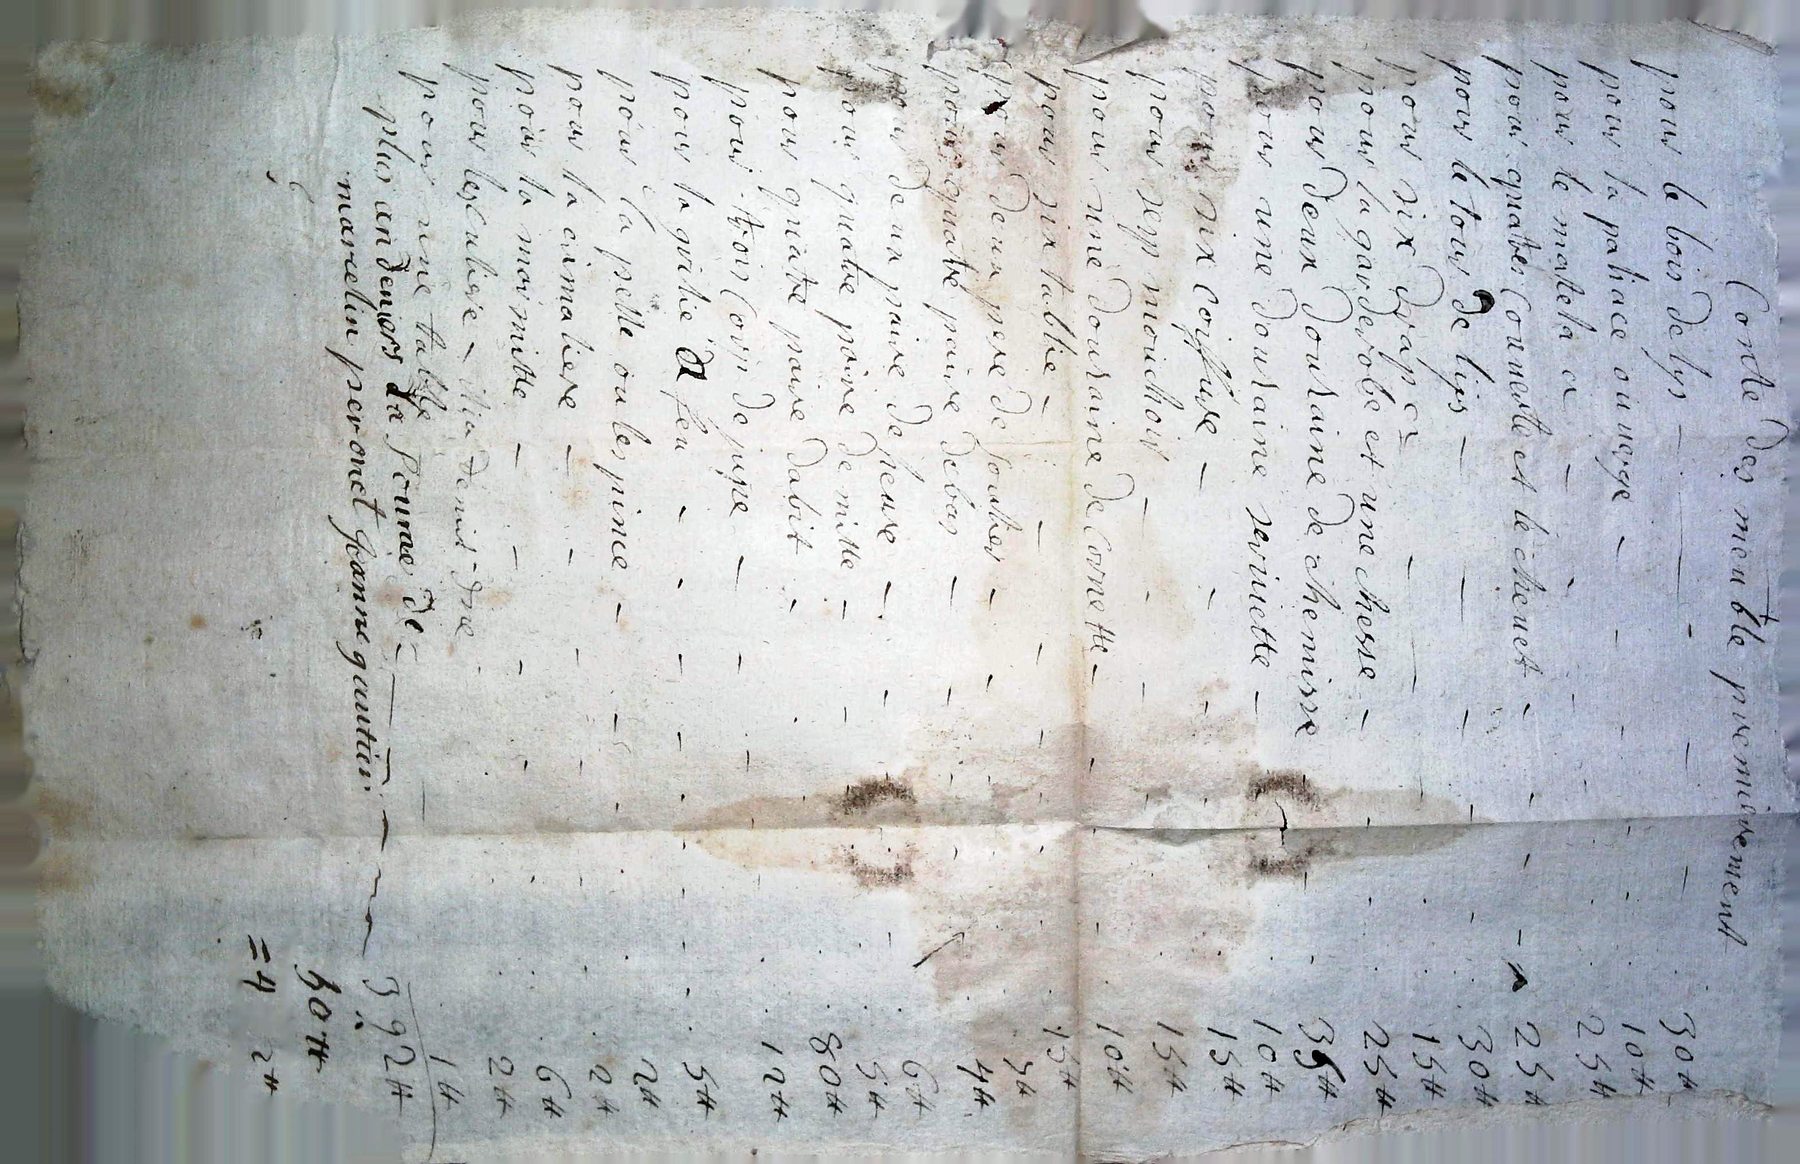 Conte des meuble premierement
pour le bois de lys - 30 ₶
pour la paliace ou verge - 10 ₶
pour le matela a - 25 ₶
pour quatre Couuerte et le cheuet - 25 ₶
pour le tour de lips - 30 ₶
pour six drap - 15 ₶
pour la garderobe et une chesse - 25 ₶
pour deux dousaine de chemisse 35 ₶
pour une dousaine seruiette - 10 ₶
pour six coiffure - 15 ₶
pour sep mouchoir - 15 ₶
pour une dousaine de Cornette - 10 ₶
pour six tablie - 15 ₶
pour deux pere de soulier - 3 ₶
pour quatre paire de bas - 4 ₶
pour de un paire de - 6 ₶
pour quatre paire de - 5 ₶
pour quatre paire dabit - 80 ₶
pour trois Corp de jupe - 12 ₶
pour la grilie a feu - 5 ₶
pour la pelle ou les pince - 2 ₶
pour la crimaliere - 2 ₶
pour la marmitte - 6 ₶
pour - 2 ₶
pour une table - 1 ₶
plus an deniers la somme de - 392 ₶
marcelin peronet joanne gautier
30 ₶
= 4 2 ₶